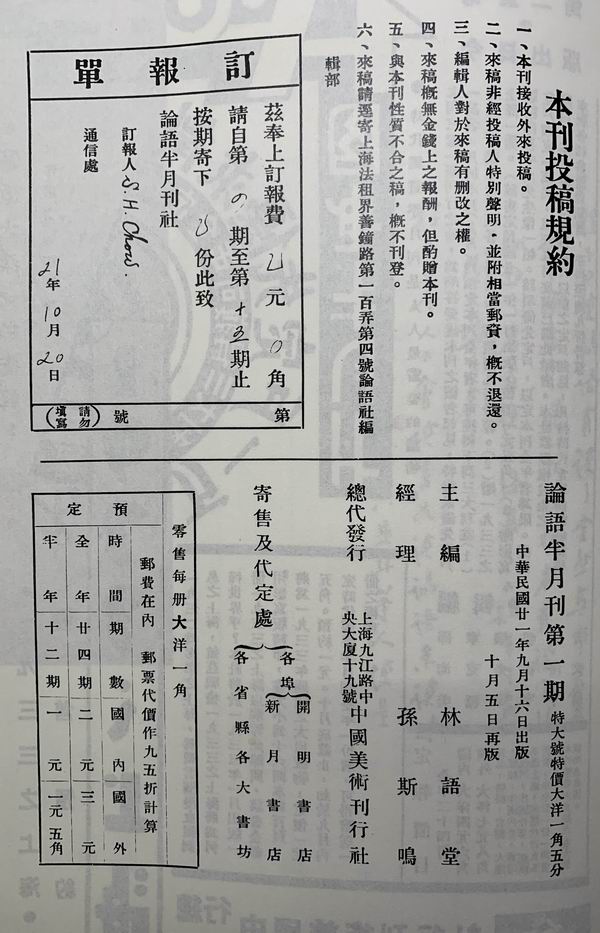 本刊投稿規約
一、本刊接收外來投稿。
二、來稿非經投稿人特別聲明，並附相當郵資，槪不退還。
三、編輯人對於來稿有删改之權。
四、來稿槪無金錢上之報酬，但酌贈本刊。
五、與本刊性質不合之稿，槪不刊登。
六、來稿請逕寄上海法租界善鐘路第一百弄第四號論語社編
輯部
訂報單
茲奉上訂報費 元 0 角
請自第 期至第 十五 期止
按期寄下 份此致
論語半月刊社
訂報人 H. Chow.
通信處
21年10月20日
第 號（請勿填寫）
論語半月刊第一期 特大號特價大洋一角五分
中華民國廿一年九月十六日出版
十月五日再版
主編 林語堂
經理 孫斯鳴
總代發行 上海九江路中央大廈十九號 中國美術刊行社
寄售及代定處
各埠
開明書店
新月書店
各省縣各大書坊
零售每册大洋一角
預定
郵費在內 郵票代價作九五折計算
時間 期數 國內 國外
全年 廿四期 二元 三元
半年 十二期 一元 一元五角